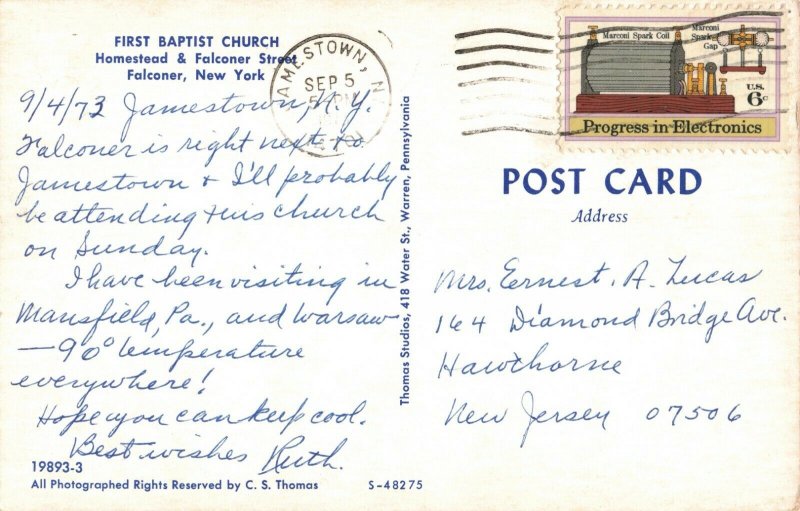 FIRST BAPTIST CHURCH
Homestead & Falconer Street
Falconer, New York
9/4/73 Jamestown, N.Y.
Falconer is right next to
Jamestown & I'll probably
be attending this church
on Sunday.
I have been visiting in
Mansfield, Pa., and Warsaw
—90° temperature
everywhere!
Hope you can keep cool.
Best wishes Ruth.
19893-3
All Photographed Rights Reserved by C. S. Thomas
S-48275
Thomas Studios, 418 Water St., Warren, Pennsylvania
JAMESTOWN, N.Y.
SEP 5
PM
Marconi Spark Coil
Marconi
Spark
Gap
U.S.
6c
Progress in Electronics
POST CARD
Address
Mrs. Ernest. A. Lucas
164 Diamond Bridge Ave.
Hawthorne
New Jersey 07506